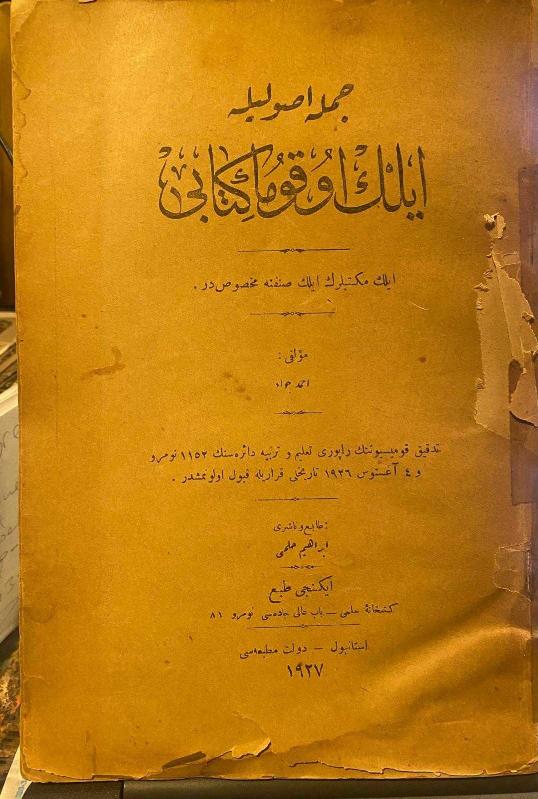 جمله اصولیله
ایلك اوُقوُما كِتابی
ایلك مكتبلرك ایلك صنفنه مخصوص‌در .
مؤلفی :
احمد جواد
تدقیق قومیسیوننك راپوری تعلیم و تربیه دائره‌سنك ١١٥٢ نومرو
و ٤ آغستوس ١٩٢٦ تاریخلی قراریله قبول اولونمشدر .
طابع و ناشری :
ابراهیم حلمی
ایكنجی طبع
كتبخانهٔ حلمی — باب عالی جاده‌سی نومرو ٨١
استانبول — دولت مطبعه‌سی
١٩٢٧